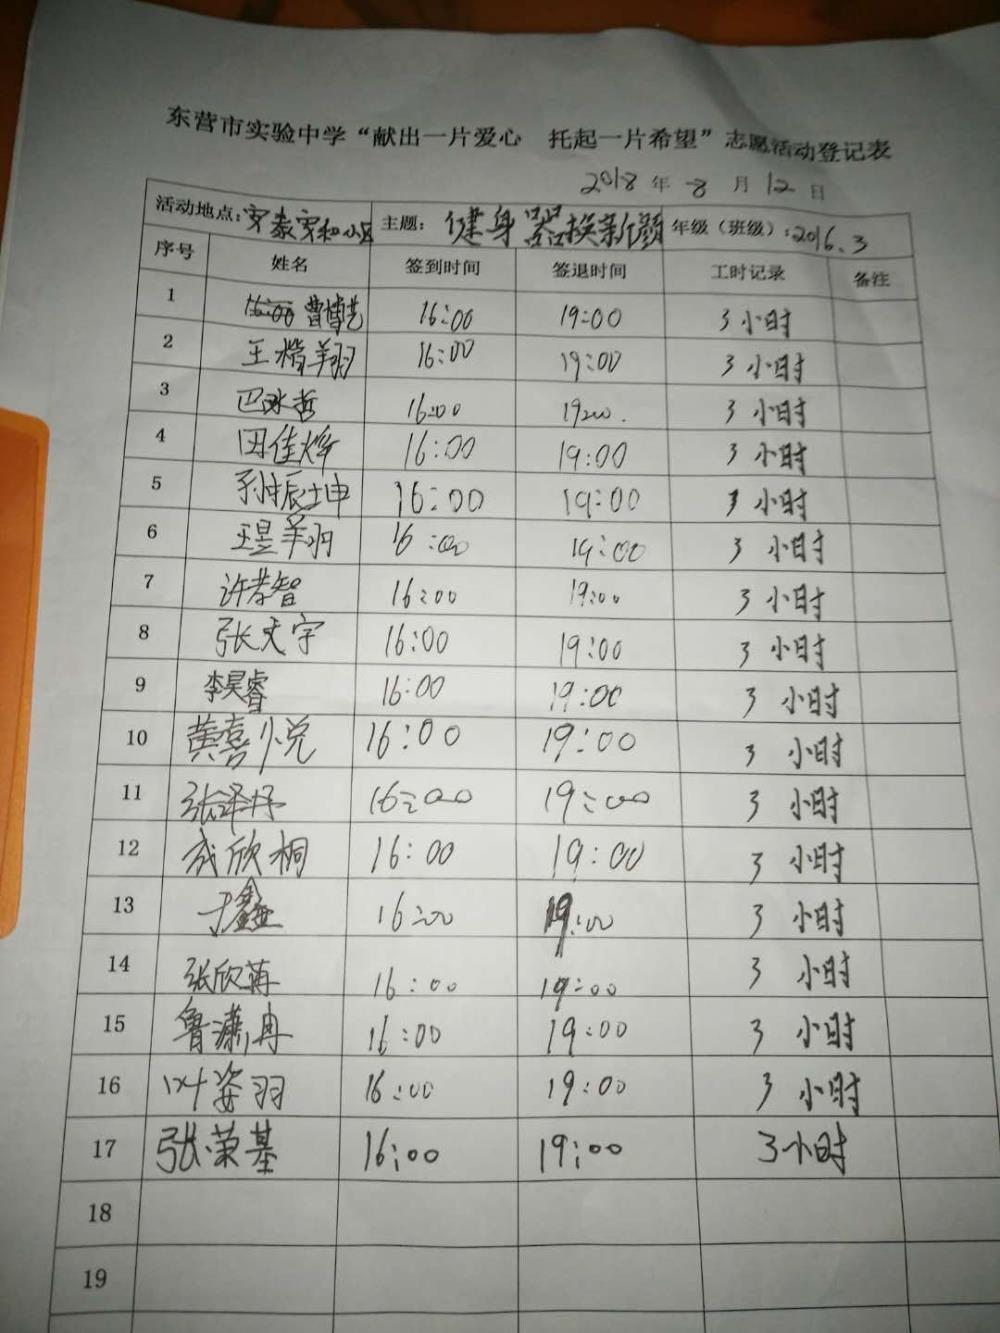 东营市实验中学“献出一片爱心 托起一片希望”志愿活动登记表
2018年 8月12日
活动地点: 安泰安和小区 主题: 健身器换新颜 年级（班级）: 2016.3
序号 姓名 签到时间 签退时间 工时记录 备注
1 曹博艺 16:00 19:00 3 小时
2 王楷翔 16:00 19:00 3 小时
3 16:00 19:00. 3 小时
4 田佳烨 16:00 19:00 3 小时
5 孙振坤 16:00 19:00 3 小时
6 王昱翔 16:00 19:00 3 小时
7 许孝智 16:00 19:00 3 小时
8 张天宇 16:00 19:00 3 小时
9 李昊睿 16:00 19:00 3 小时
10 黄喜悦 16:00 19:00 3 小时
11 16:00 19:00 3 小时
12 成欣桐 16:00 19:00 3 小时
13 于鑫 16:00 19:00 3 小时
14 张欣苒 16:00 19:00 3 小时
15 鲁潇冉 16:00 19:00 3 小时
16 叶姿羽 16:00 19:00 3 小时
17 张荣基 16:00 19:00 3小时
18
19